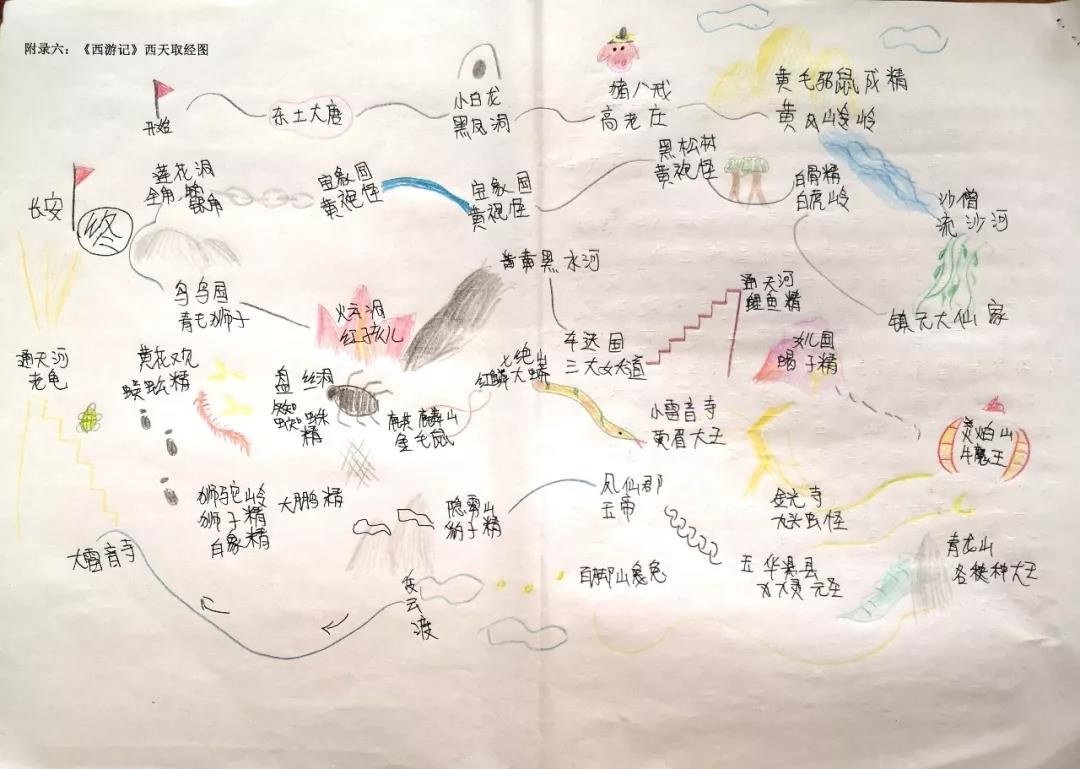 附录六：《西游记》西天取经图
开始
东土大唐
小白龙
黑风洞
猪八戒
高老庄
黄毛貂鼠成精
黄风岭
沙僧
流沙河
镇元大仙家
白骨精
白虎岭
黑松林
黄袍怪
宝象国
黄袍怪
宝象国
黄袍怪
莲花洞
金角 银角
长安
终
乌鸡国
青毛狮子
火云洞
红孩儿
黑水河
车迟国
三大
通天河
鲤鱼精
女儿国
蝎子精
牛魔王
金光寺
九头虫怪
小雷音寺
黄眉大王
七绝山
红鳞大蟒
麒麟山
金毛鼠
盘丝洞
蜘蛛
精
黄花观
蜈蚣精
狮驼岭
狮子精
白象精
大鹏精
隐雾山
豹子精
凤仙郡
玉帝
玉华县
元圣
青龙山
大王
玉兔
云
渡
大雷音寺
通天河
老龟